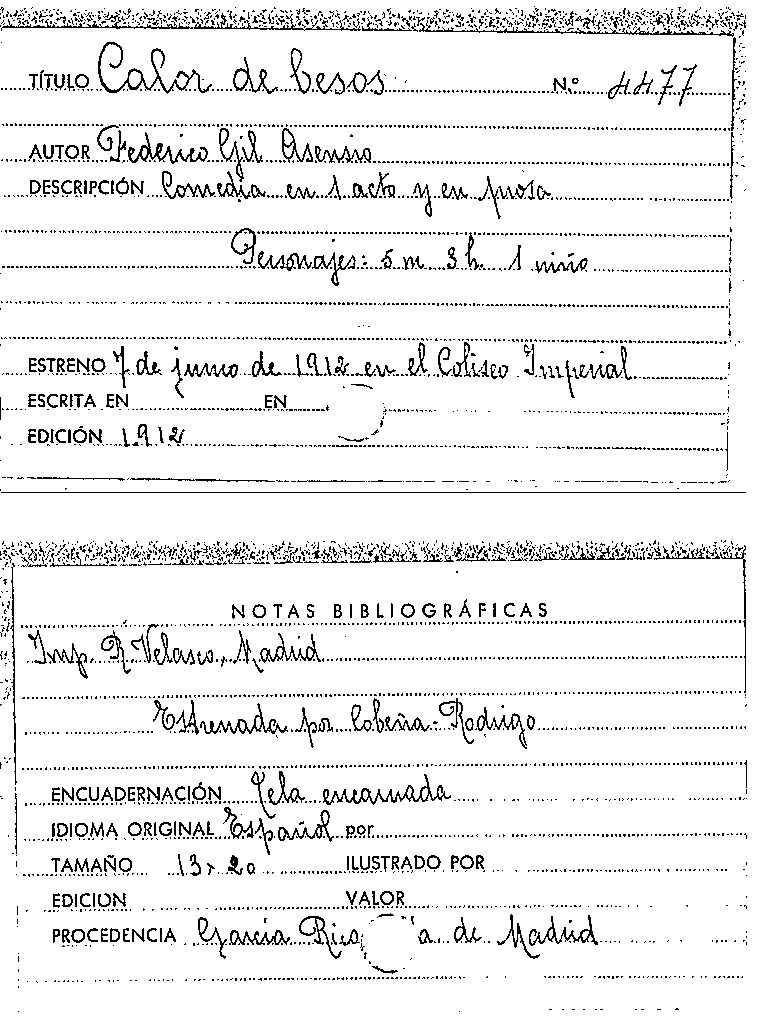 TÍTULO Calor de besos N.º 4477
AUTOR Federico Gil Asensio
DESCRIPCIÓN Comedia en 1 acto y en prosa
Personajes: 5 m 3 h. 1 niño
ESTRENO 7 de junio de 1912 en el Coliseo Imperial
ESCRITA EN EN
EDICIÓN 1912
NOTAS BIBLIOGRÁFICAS
Imp. R. Velasco, Madrid
Estrenada por Cobeña-Rodrigo
ENCUADERNACIÓN Tela encarnada
IDIOMA ORIGINAL Español por
TAMAÑO 13 x 20 ILUSTRADO POR
EDICION VALOR
PROCEDENCIA García Rico de Madrid